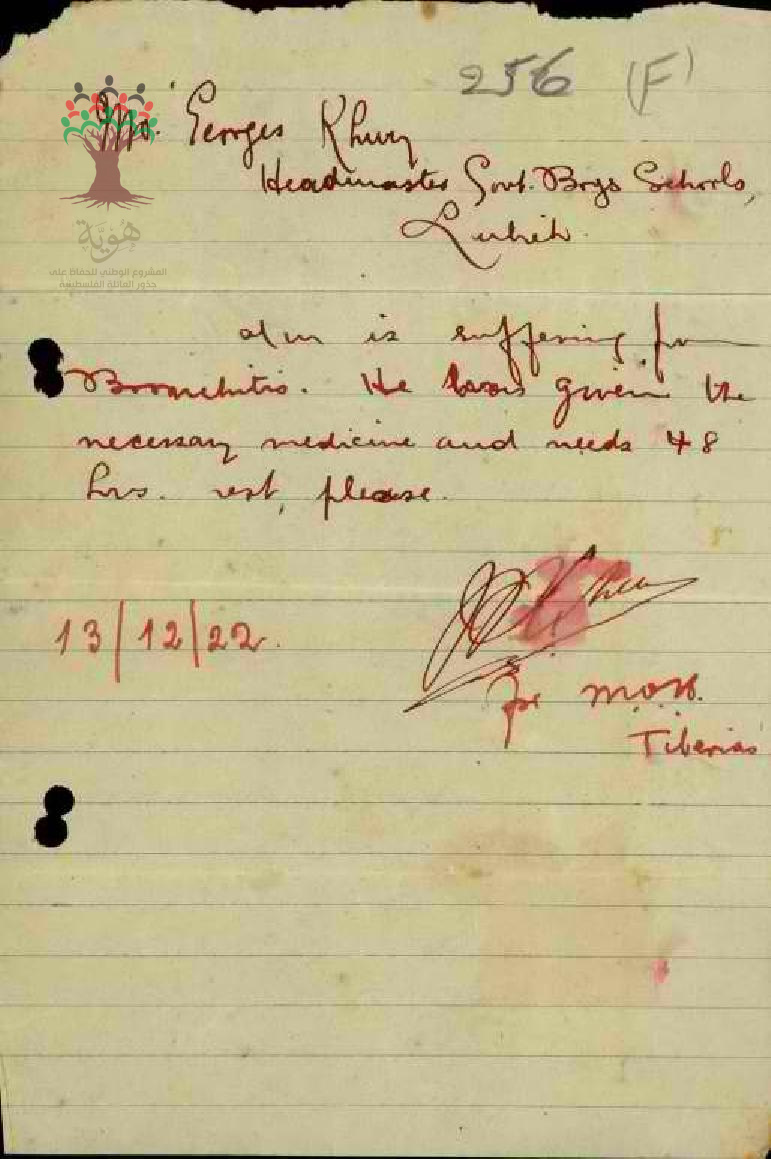 256 (F)
Mr. Georges Khury
Headmaster Govt. Boys Schools,
Lubieh
هُوِيَّة
المشروع الوطني للحفاظ على
جذور العائلة الفلسطينية
is suffering from
Bronchitis. He was given the
necessary medicine and needs 48
hrs. rest, please.
13/12/22.
for M.O.H.
Tiberias